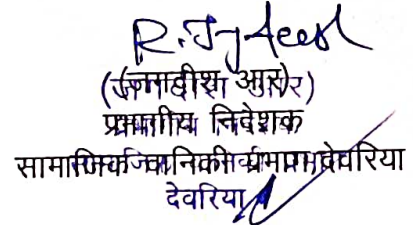 (जगदीश आर)
प्रभागीय निदेशक
सामाजिक वानिकी प्रभाग देवरिया
देवरिया